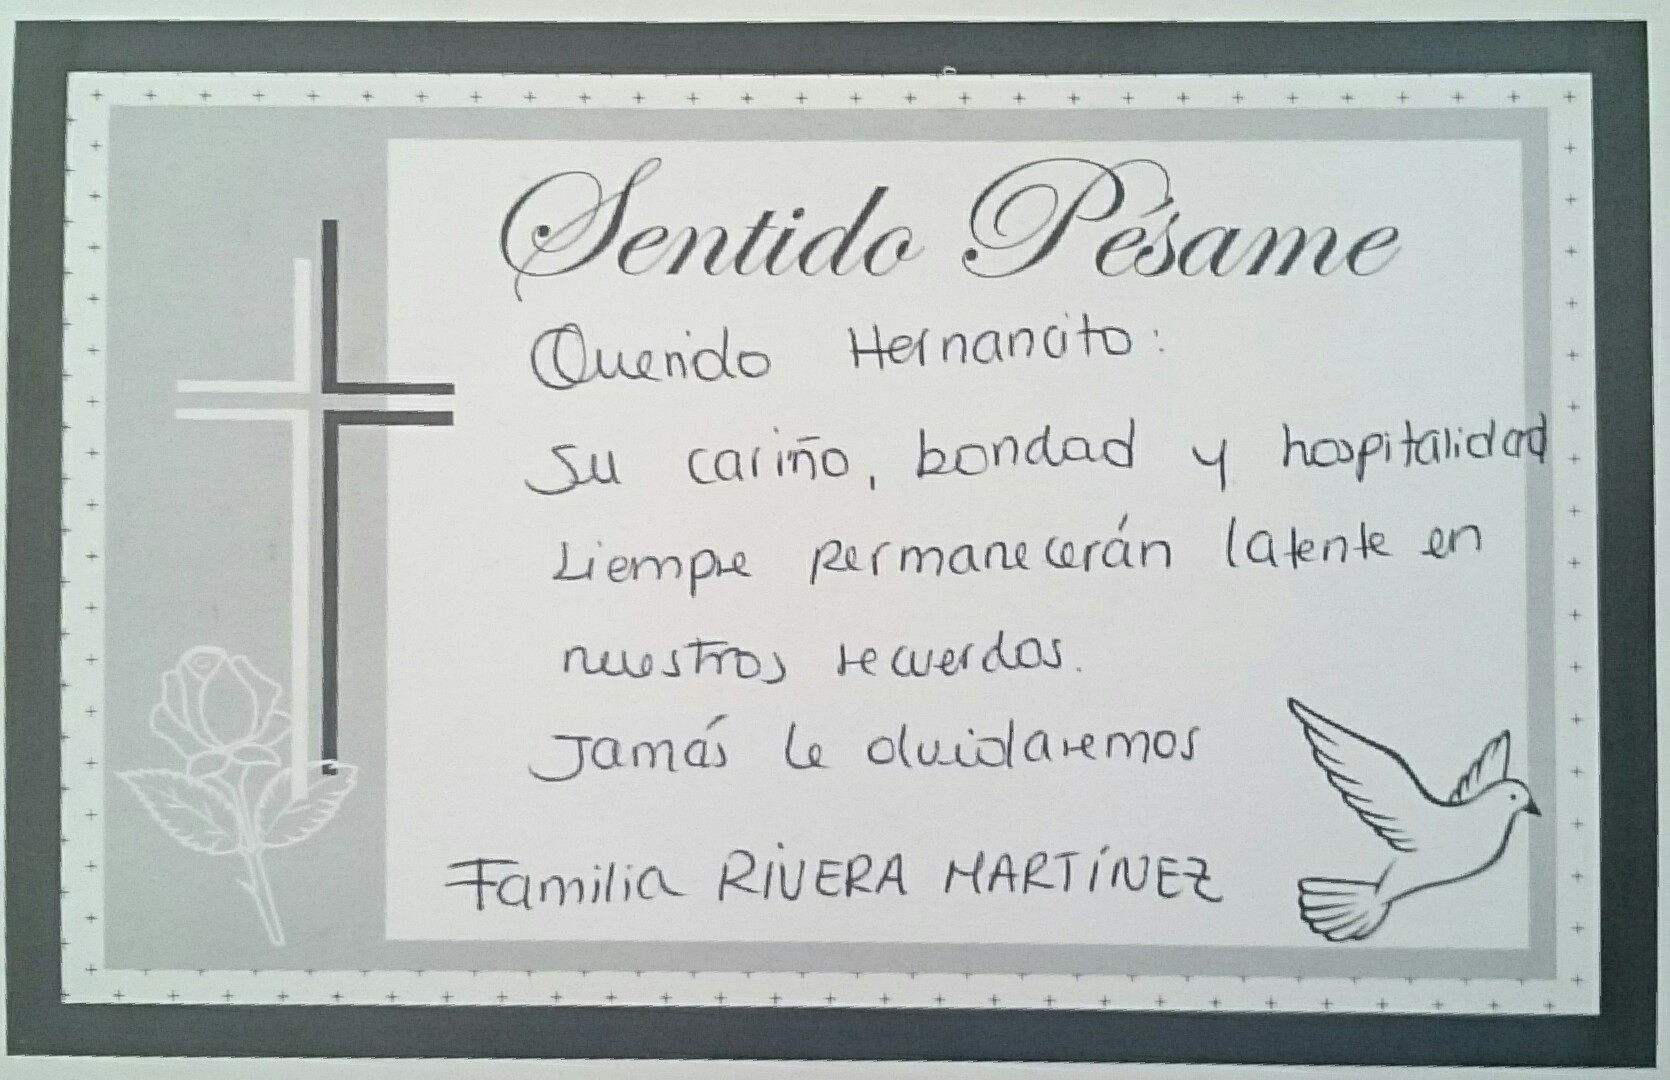 Sentido Pésame
Querido Hernancito:
Su cariño, bondad y hospitalidad
siempre permanecerán latente en
nuestros recuerdos.
Jamás le olvidaremos
Familia RIVERA MARTÍNEZ